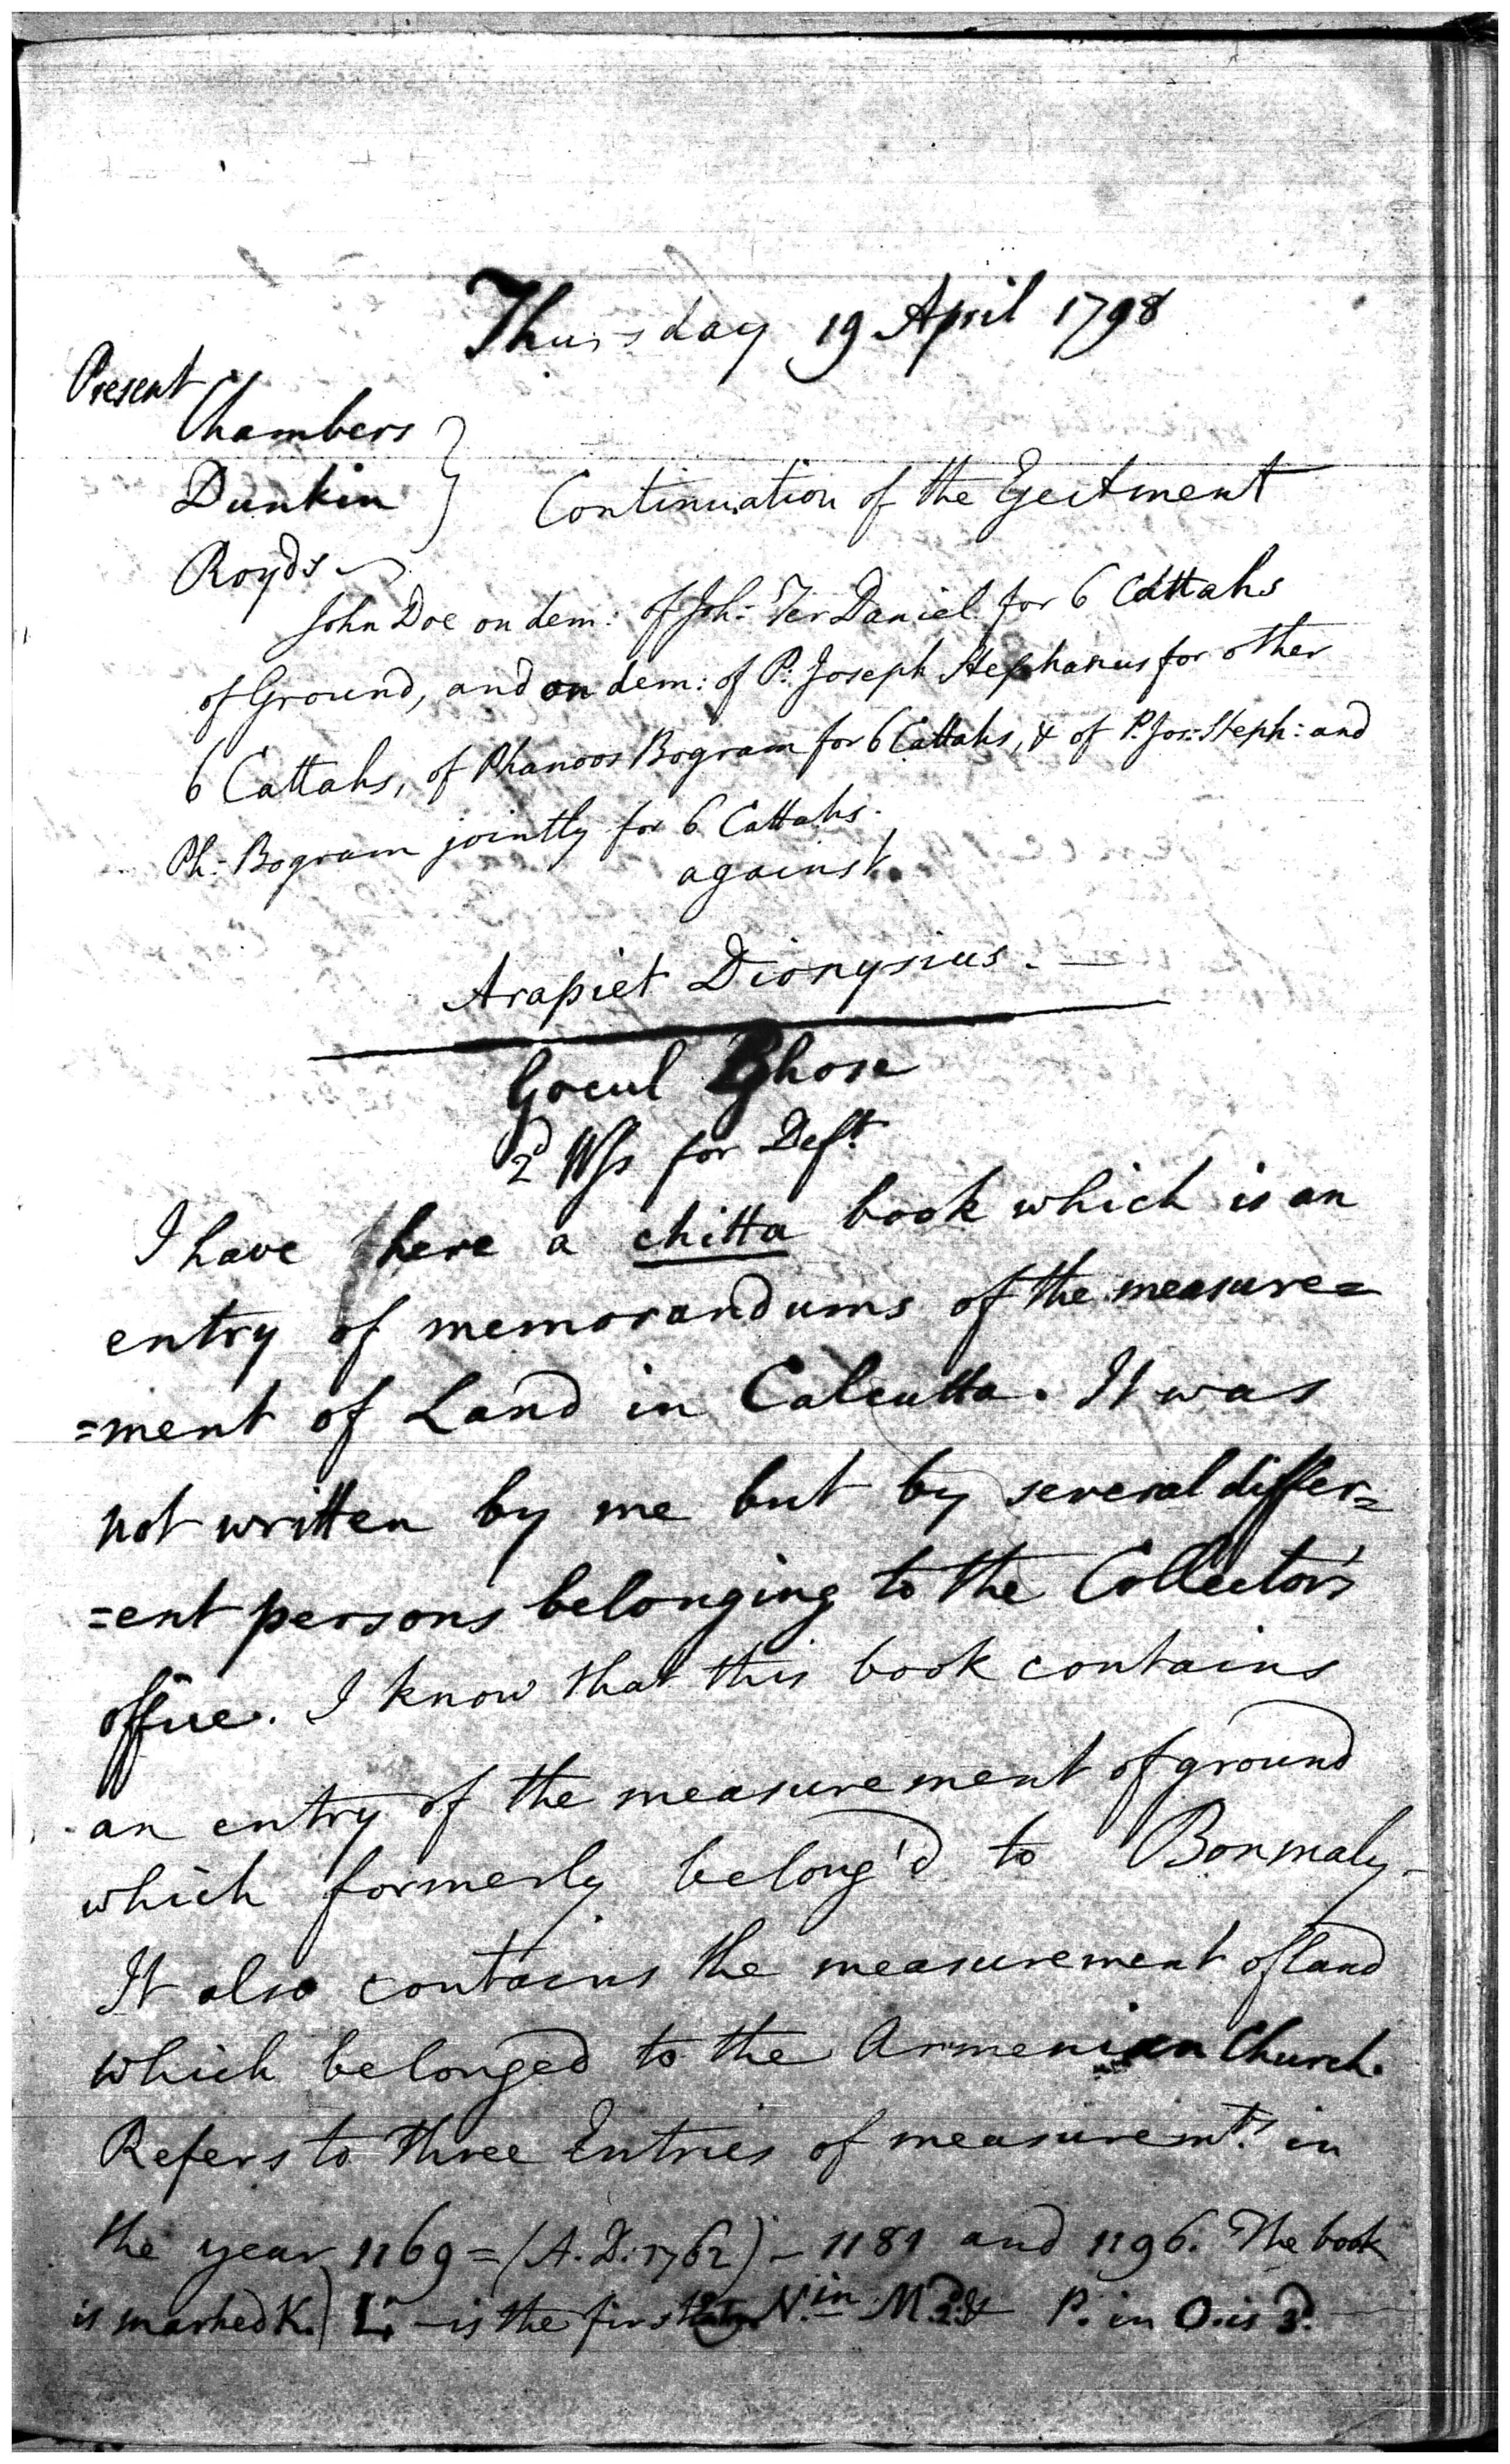 Thursday 19 April 1798
Present
Chambers
Dunkin } Continuation of the Ejectment
Royds
John Doe on dem: of Joh:- Ter Daniel for 6 Cattahs
of Ground, and on dem: of P: Joseph Stephanus for other
6 Cattahs, of Phanoos Bogram for 6 Cattahs, & of P. Jos: Steph: and
Ph:- Bogram jointly for 6 Cattahs.
against
Arapiet Dionysius. —
Gocul Ghose
2d Wss for Deft
I have here a chitta book which is an
entry of memorandums of the measure=
=ment of Land in Calcutta. It was
not written by me but by several differ=
=ent persons belonging to the Collector's
office. I know that this book contains
an entry of the measurement of ground
which formerly belong'd to Bonmaly-
It also contains the measurement of land
which belonged to the Armenian Church.
Refers to three Entries of measuremt. in
the year 1169 = (A.D. 1762) - 1181 and 1196. The book
is marked K.) L. - is the first N. in M. 2d. & P. in O. is 3d.